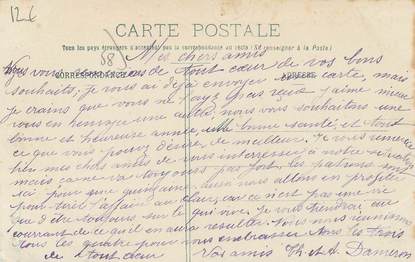 12€
CARTE POSTALE
Tous les pays étrangers n'acceptent pas la correspondance au recto (Se renseigner à la Poste)
58)
Mes chers amis
CORRESPONDANCE
ADRESSE
Nous vous de tout cœur de vos bons
souhaits; je vous ai déjà envoyer carte, mais
je crains que vous ne l'ayez pas reçue j'aime mieux
vous en une autre, nous vous souhaitons une
bonne et heureuse année, une bonne santé, et tout
ce que vous pouvez désirer de meilleur. Je vous remercie
bien mes chers amis de vous à notre
mais ça ne va toujours pas fort les patrons sont
ici pour une quinzaine aussi nous allons en profiter
pour tirer l'affaire au clair, car ce n'est pas une vie
que d'être toujours sur le qui vive. Je vous tiendrai au
courant de ce qu'il en aura résulter. Nous nous réunissons
tous les quatre pour vous embrasser tous les trois
de tout cœur Vos amis Th. et A. Dameron